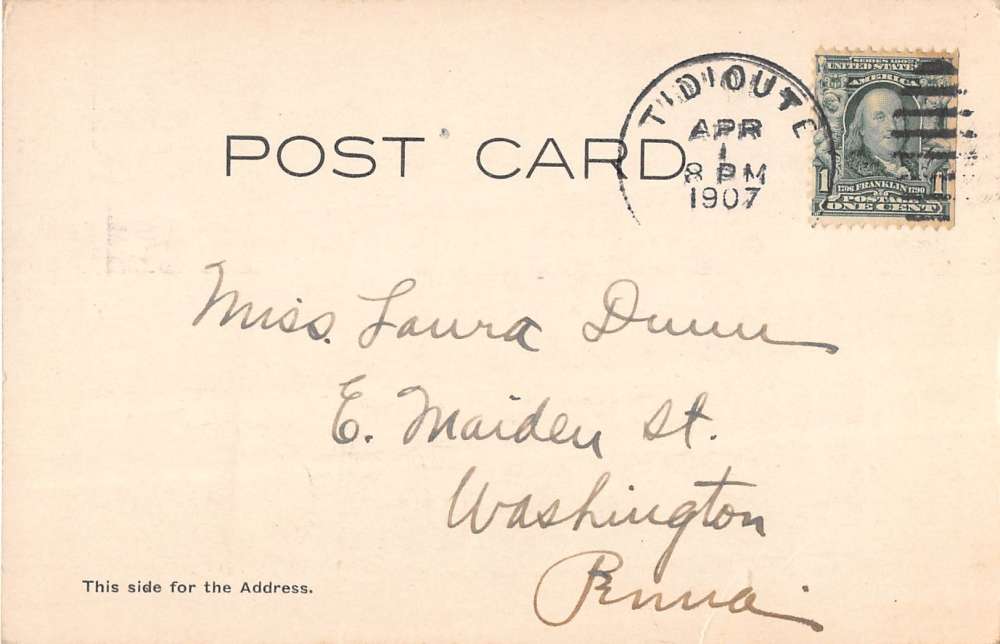 POST CARD
TIDIOUTE
APR
1
8 PM
1907
SERIES 1902
UNITED STATES
AMERICA
1 1706 FRANKLIN 1790 1
POSTAGE
ONE CENT
Miss. Laura Dunn
E. Maiden St.
Washington
Penna.
This side for the Address.